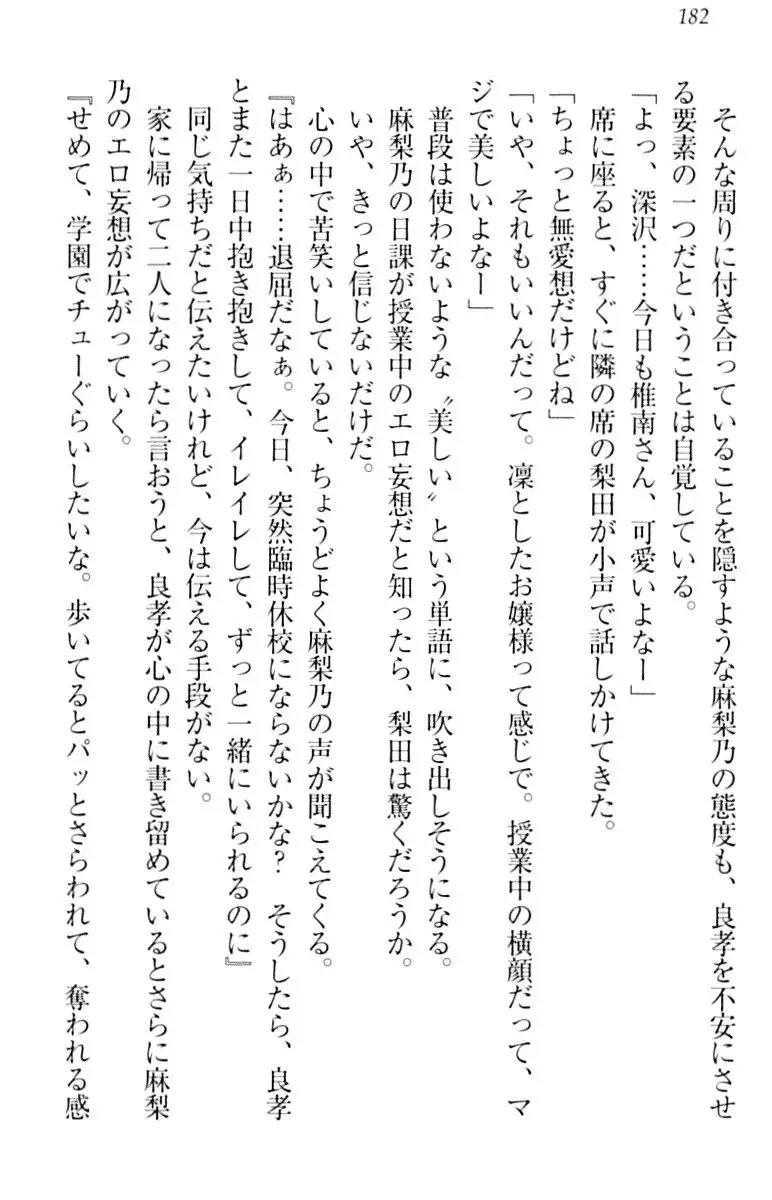 182
そんな周りに付き合っていることを隠すような麻梨乃の態度も、良孝を不安にさせ
る要素の一つだということは自覚している。
「よっ、深沢……今日も椎南さん、可愛いよなー」
席に座ると、すぐに隣の席の梨田が小声で話しかけてきた。
「ちょっと無愛想だけどね」
「いや、それもいいんだって。凛としたお嬢様って感じで。授業中の横顔だって、マ
ジで美しいよなー」
普段は使わないような〝美しい〟という単語に、吹き出しそうになる。
麻梨乃の日課が授業中のエロ妄想だと知ったら、梨田は驚くだろうか。
いや、きっと信じないだけだ。
心の中で苦笑いしていると、ちょうどよく麻梨乃の声が聞こえてくる。
『はあぁ……退屈だなぁ。今日、突然臨時休校にならないかな？　そうしたら、良孝
とまた一日中抱き抱きして、イレイレして、ずっと一緒にいられるのに』
同じ気持ちだと伝えたいけれど、今は伝える手段がない。
家に帰って二人になったら言おうと、良孝が心の中に書き留めているとさらに麻梨
乃のエロ妄想が広がっていく。
『せめて、学園でチューぐらいしたいな。歩いてるとパッとさらわれて、奪われる感